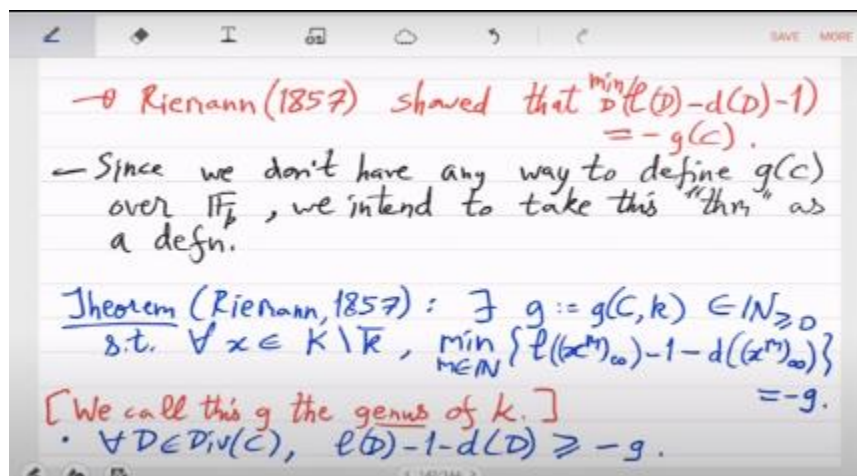 SAVE MORE
→ Riemann (1857) showed that min_D (ℓ(D) - d(D) - 1)
= - g(C).
- Since we don't have any way to define g(C)
over 𝔽_p, we intend to take this "thm" as
a defn.
Theorem (Riemann, 1857): ∃ g := g(C, k) ∈ ℕ_{≥0}
s.t. ∀ x ∈ K \ k̄, min_{m∈ℕ} {ℓ((x^m)_∞) - 1 - d((x^m)_∞)}
= -g.
[We call this g the genus of k.]
· ∀ D ∈ Div(C), ℓ(D) - 1 - d(D) ≥ - g.